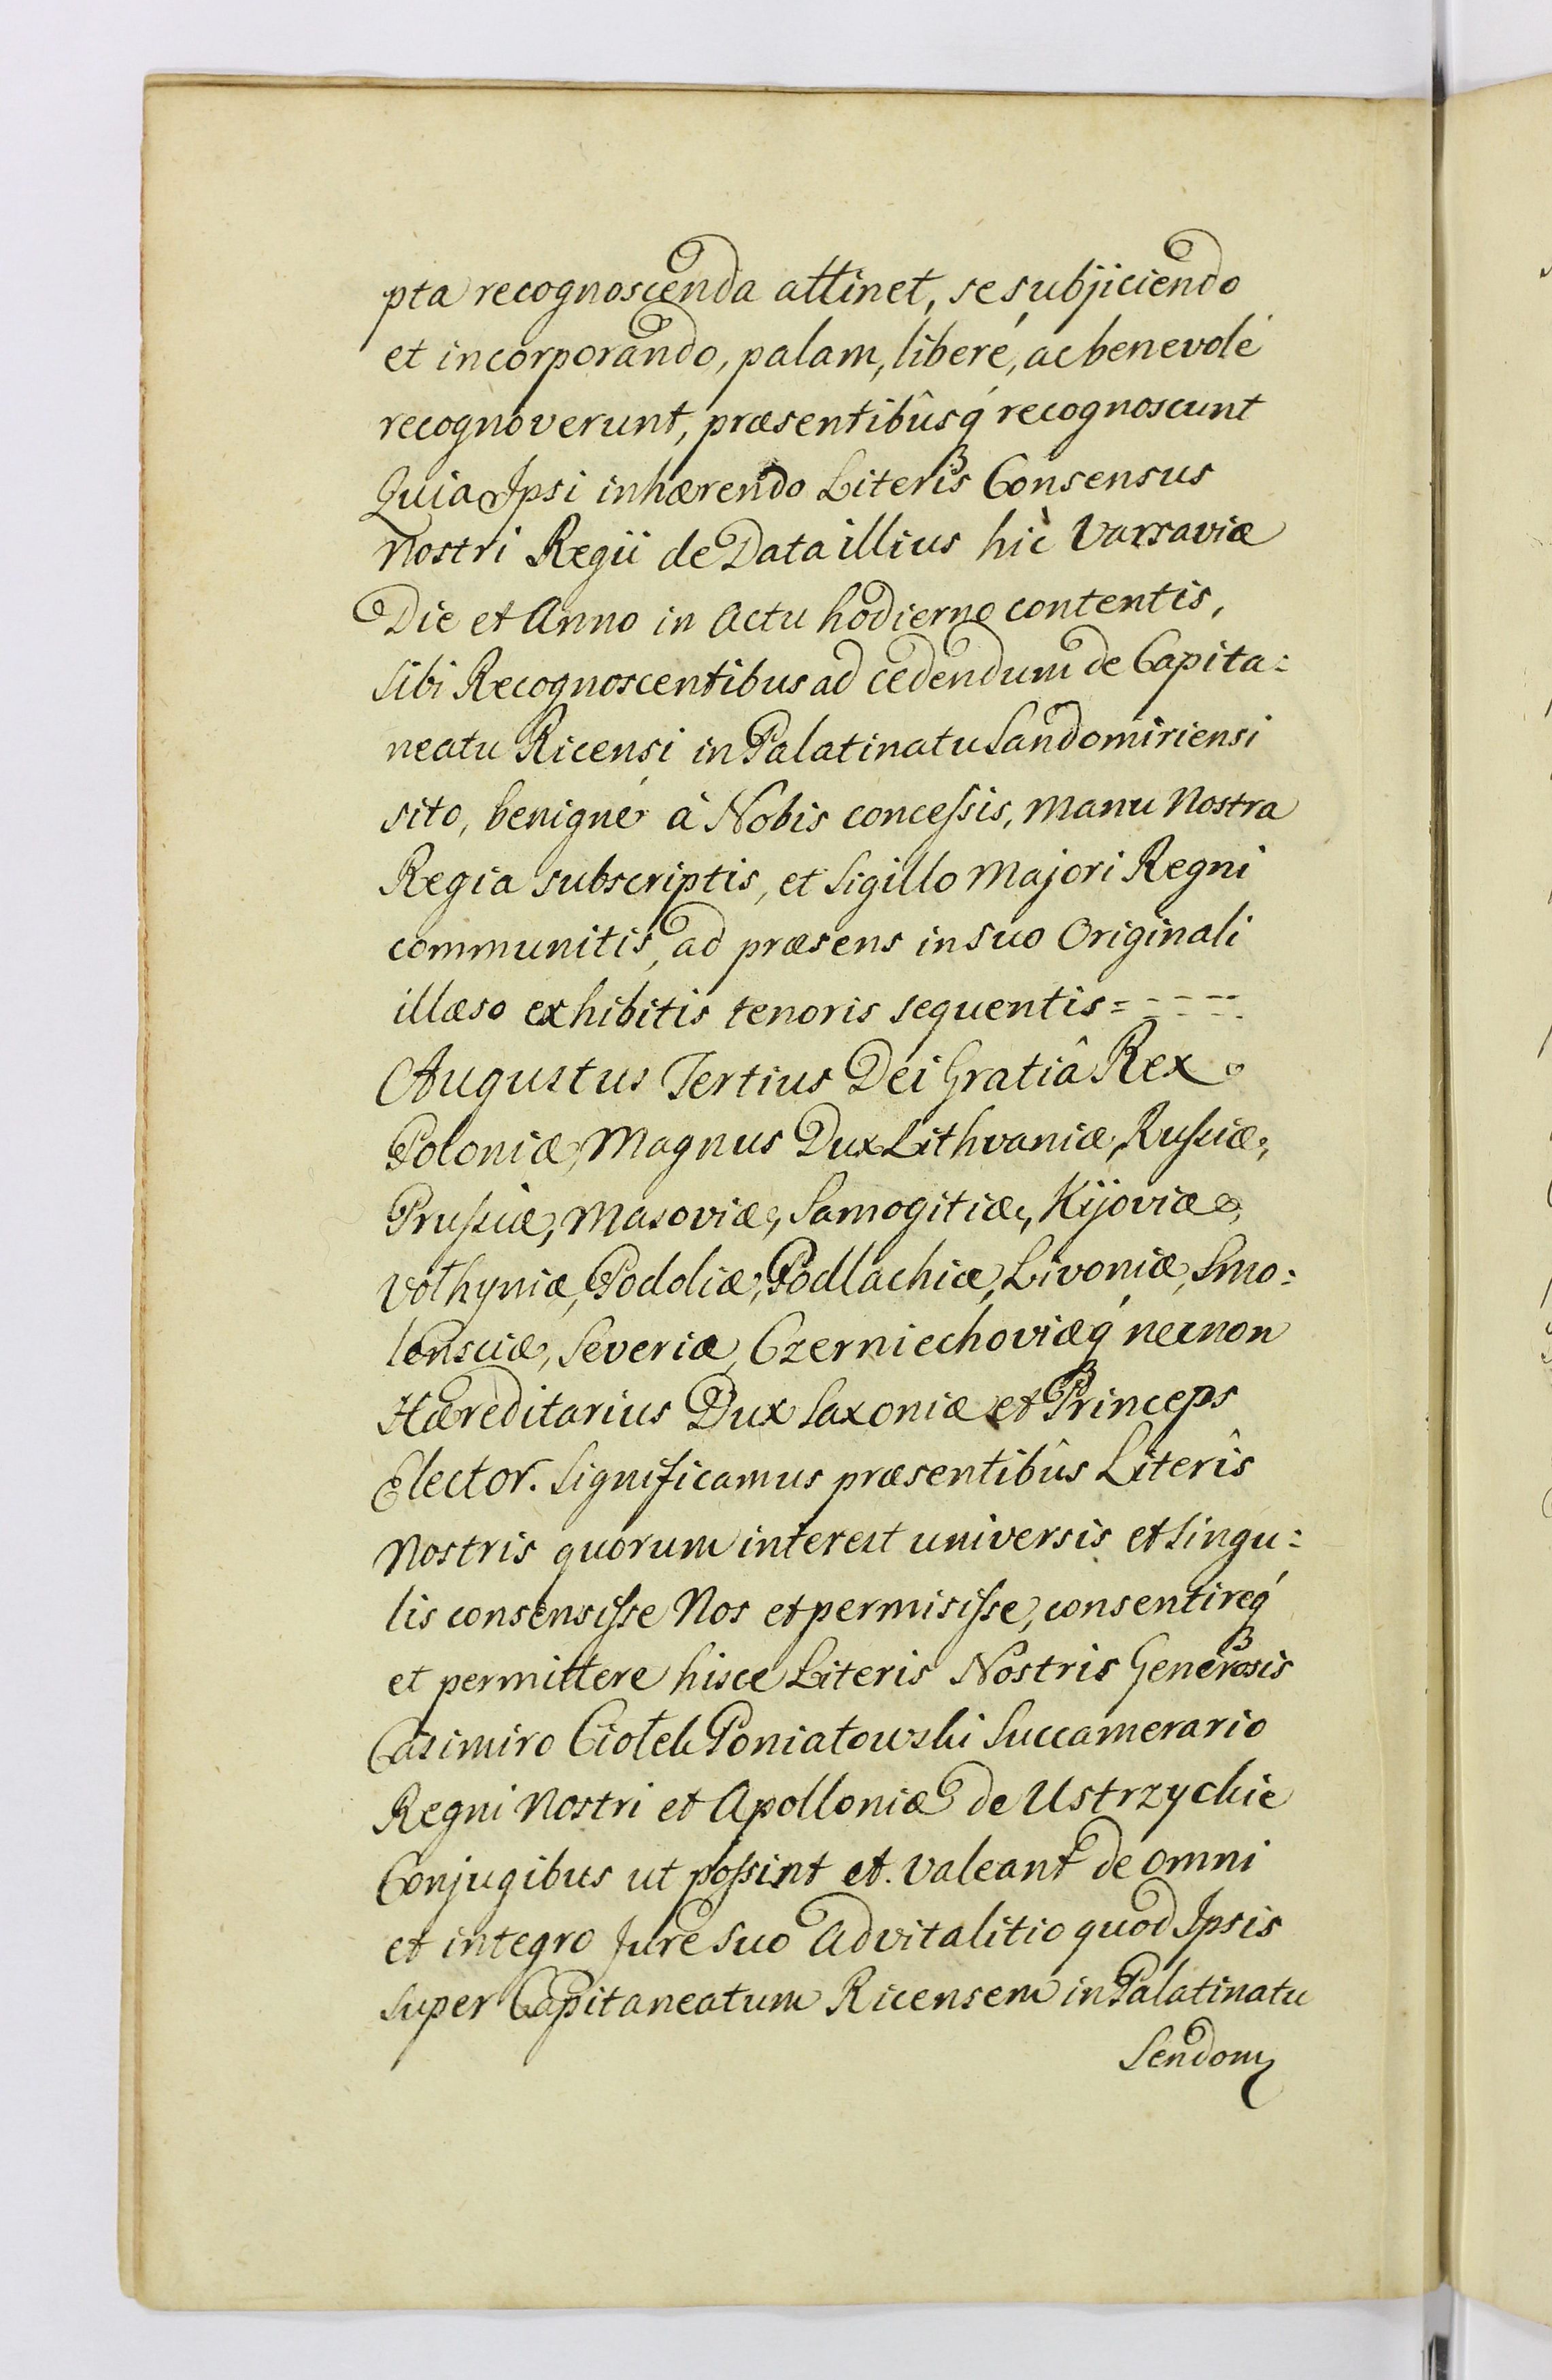 pta recognoscenda attinet, se subjiciendo
et incorporando, palam, liberé, ac benevolé
recognoverunt, præsentibûsq́ recognoscunt
Quia Ipsi inhærendo Literis Consensus
Nostri Regii de Data illius hìc Varsaviæ
Die et Anno in Actu hodierno contentis,
sibi Recognoscentibus ad cedendum de Capita:
neatu Ricensi in Palatinatu Sandomiriensi
sito, benigné à Nobis concessis, manu Nostra
Regia subscriptis, et Sigillo Majori Regni
communitis, ad præsens in suo Originali
illæso exhibitis tenoris sequentis = - - - -
Augustus Tertius Dei Gratiâ Rex
Poloniæ, Magnus Dux Lithvaniæ, Russiæ,
Prussiæ, Masoviæ, Samogitiæ, Kijoviæ,
Volhyniæ, Podoliæ, Podlachiæ, Livoniæ, Smo:
lensciæ, Severiæ, Czerniechoviæq́ necnon
Hæreditarius Dux Saxoniæ et Princeps
Elector. Significamus præsentibûs Literîs
Nostris quorum interest universis et singu:
lis consensisse Nos et permisisse, consentireq́
et permittere hisce Literis Nostris Generosis
Casimiro Ciołek Poniatowski Succamerario
Regni Nostri et Apolloniæ de Ustrzyckie
Conjugibus ut possint et valeant de omni
et integro Jure suo Advitalitio quod Ipsis
super Capitaneatum Ricensem in Palatinatu
Sendom